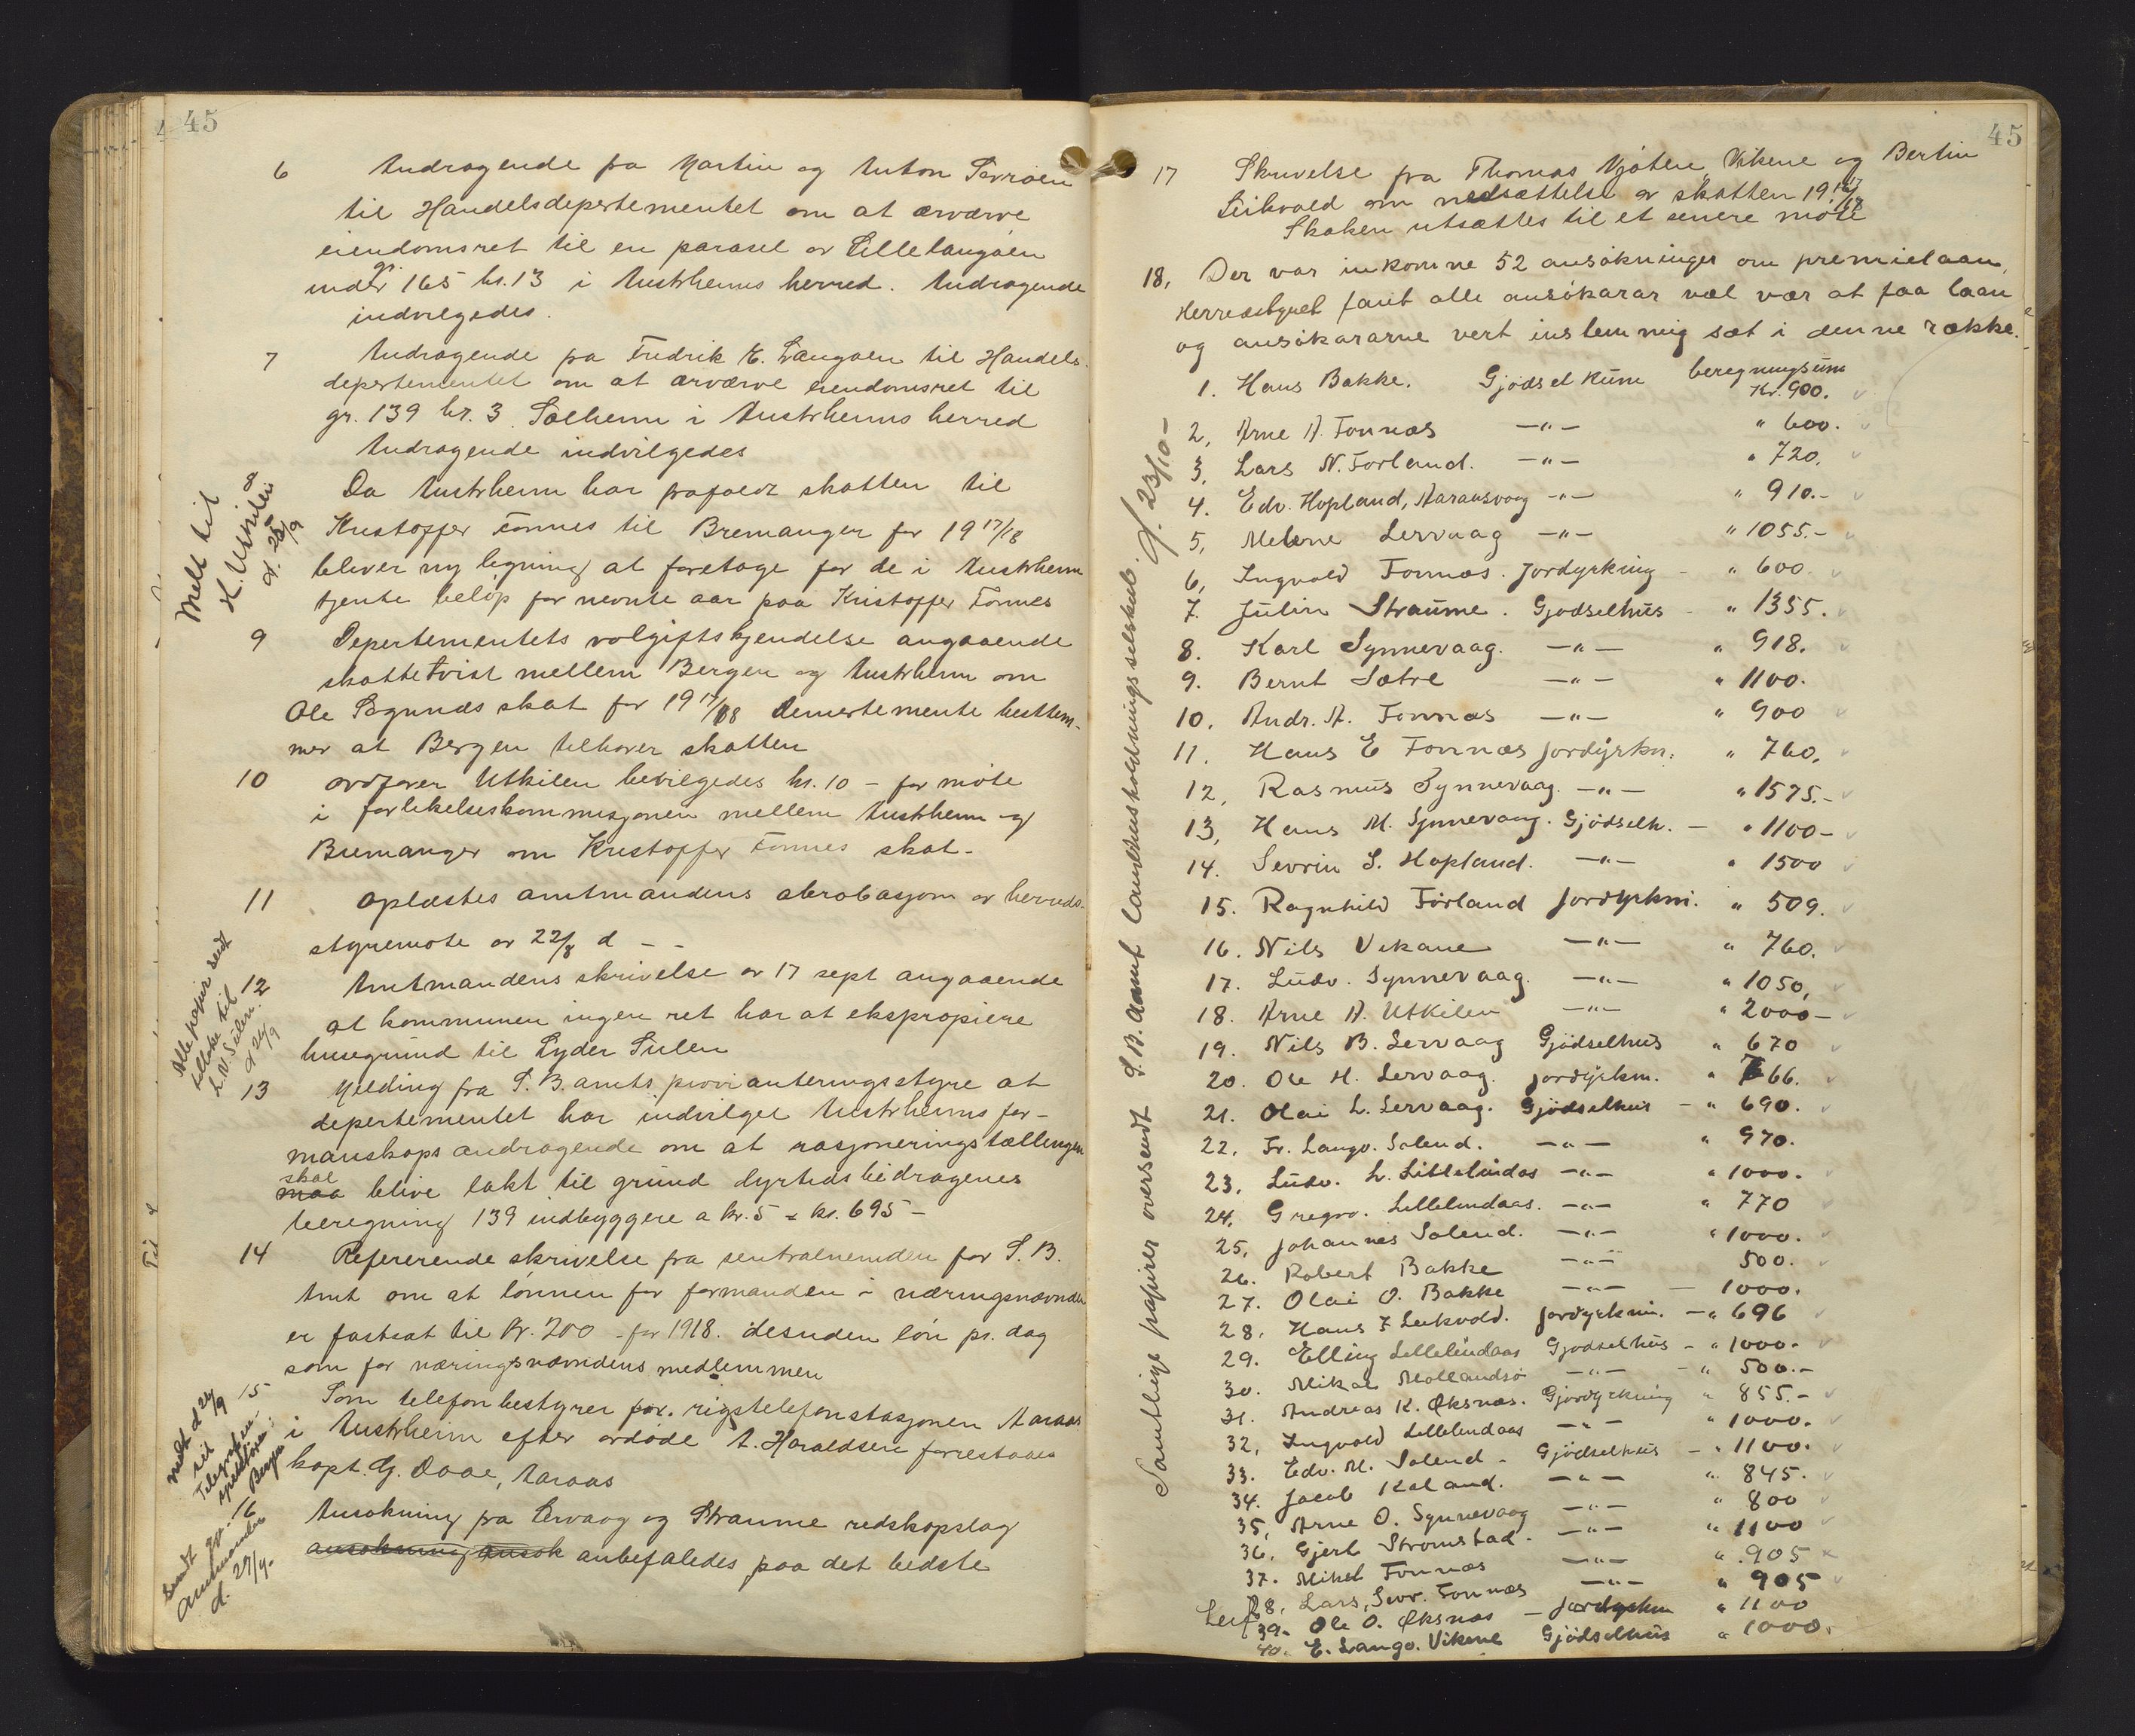 45
6 Andragende fra Martin og Anton Sævrøen
til Handelsdepertementet om at ærværve
eiendomsret til en parasel av Lillelangøen
under gr. 165 br. 13 i Austrheims herred. Andragende
indvilgedes.
7 Andragende fra Fredrik E. Langøen til Handels-
depertementet om at ærværve eiendomsret til
gr. 139 br. 3 Solheim i Austrheims herred
Andragende indvilgedes
Melt til
K. Utkilen
d. 25/9
8 Da Austrheim har frafaldt skatten til
Kristoffer Fonnes til Bremanger for 1917/18
bliver ny ligning at foretage for de i Austrheim
tjente beløp for nevnte aar paa Kristoffer Fonnes
9 Depertementets volgiftskjendelse angaaende
skattetvist mellem Bergen og Austrheim om
Ole Søgnnæs skat for 1917/18 Demertemente bestem-
mer at Bergen tilhører skatten
10 ordfører Utkilen bevilgedes kr. 10 - for møte
i forlikelseskommisjonen mellem Austrheim og
Bremanger om Kristoffer Fonnes skat -
11 Oplæstes amtmandens abrobasjon av herreds-
styremøte av 22/8 d - -
Alle papir sendt
tilbake til
L. N. Sulen.
d 24/9
12 Amtmandens skrivelse av 17 sept angaaende
at kommunen ingen ret har at ekspropiere
husegrund til Lyder Sulen
13 Melding fra S. B. amts provianteringsstyre at
depertementet har indvilget Austrheims for-
manskaps andragende om at rasjoneringstællingen
skal
maa blive lakt til grund dyrtidsbidragenes
beregning 139 indbyggere a kr. 5 = kr. 695 -
14 Refererende skrivelse fra sentralnemden for S. B.
Amt om at lønnen for formanden i næringsnævnden
er fastsat til kr. 200 - for 1918. desuden løn pr. dag
som for næringsnævndens medlemmer
melt d 24/9
til
Telegraf
Bergen
15 Som telefonbestyrer for. rigstelefonstasjonen Aaraas
i Austrheim efter avdøde A. Haraldsen forrestaaes
kapt. G. Daae, Aaraas
sendt
Amtmanden
d. 27/9.
16 Ansøkning fra Lervaag og Straume redskapslag
ansøkning ansøk anbefaledes paa det bedste
45
17 Skrivelse fra Thomas Njøten, Vikene og Bertin
Leikvold om nedsættelse av skatten 1917/18
Skaken utsættes til et senere møte
18, Der var inkomne 52 ansøkninger om premielaan,
Herredstyret fant alle ansøkarar vel vær at faa laan
og ansøkararne vert instemmig sæt i denne række.
beregningsum
1. Hans Bakke. Gjødselkum Kr. 900.
2, Arne A. Fonnæs —"— " 600.
3, Lars N. Førland. —"— " 720.
4. Edv. Hopland, Aaraasvaag —"— " 910.-
5, Melene Lervaag —"— " 1055.-
6, Ingvald Fonnæs. Jordyrking - " 600.
7. Julin Straume. Gjødselhus - " 1355.
8. Karl Synnevaag. —"— " 918.
9. Bernt Sætre —"— " 1100.
10. Andr. A. Fonnæs —"— " 900
11. Hans E Fonnæs Jordyrkn. " 760,
12, Rasmus Synnevaag. —"— " 1575.-
13, Hans M. Synnevaag. Gjødselh. — " 1100-
14. Sevrin S. Hopland. —"— " 1500
15. Ragnhild Førland Jordyrkni. " 509.
16. Nils Vikane —"— " 760.
17. Ludv. Synnevaag. —"— " 1050,
18. Arne A. Utkilen —"— " 2000-
19. Nils B. Lervaag Gjødselhus " 670
20. Ole H. Lervaag. Jordyrkn. " 766.
21. Olai L. Lervaag. Gjødselhus - " 690.
22, Fr. Langv. Solend. —"— " 970.
23, Ludv. L. Lillelindaas —"— " 1000.
24, Grego. Lillelindaas. —"— " 770
25, Johannes Solend. —"— " 1000.
26. Robert Bakke —"— 500.
27. Olai O. Bakke —"— — 1000.
28, Hans J Leikvold. Jordyrkni. — " 696
29. Elling Lillelindaas Gjødselhus - " 1000.
30. Mikal Mollandsø —"— - " 500.-
31. Andreas K. Øksnæs. Gjordyrkning " 855.-
32, Ingvald Lillelindaas —"— " 1000.
33. Edv. M. Solend - Gjødselhus - " 1100.
34. Jacob Kaland. —"— " 845.
35, Arne O. Synnevaag —"— " 800
36, Gjert Strømstad. —"— " 1100
37. Mikel Fonnæs —"— " 905
38, Lars Sevr. Fonnæs —"— " 905
39. Leif Ole O. Øksnæs — Jordyrkn " 1100
40. E. Langø. Vikene Gjødselhus " 1000.
Samtlige papirer oversendt S. B. Aamt landhusholdningsselskab. d. 23/10 -